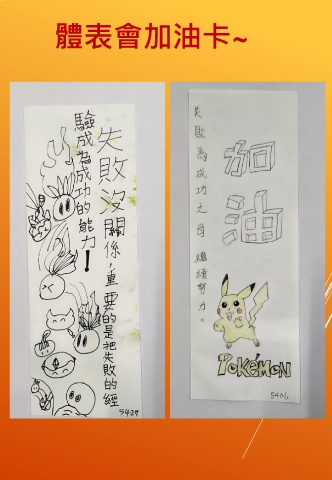 體表會加油卡~
失敗沒關係,重要的是把失敗的經
驗成為成功的能力!
5427
加油
失敗為成功之母 繼續努力。
POKÉMON
5406